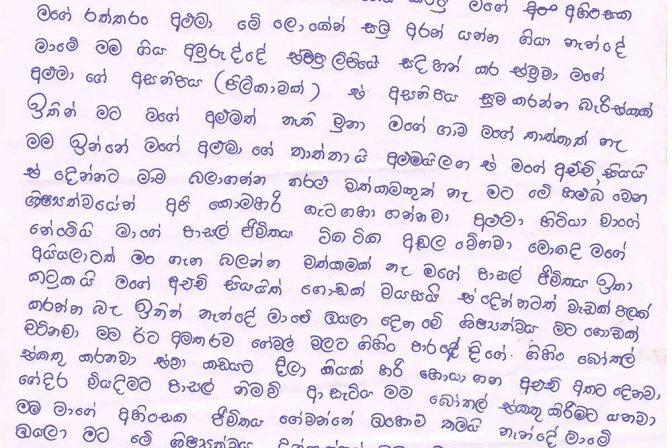 මගේ අප්‍ර අහිංසක
මගේ රත්තරං අම්මා මේ ලොකෙන් සමු අරන් යන්න ගියා නැන්දේ
මාමේ මම ගිය අවුරුද්දේ ලිපියේ සඳහන් කර එව්වා මගේ
අම්මා ගේ අසනීපය (පිලිකාවක්) ඒ අසනීපය සුව කරන්න බැරිඋනා
ඉතින් මට මගේ අම්මත් නැති වුනා මගේ ගාව මගේ තාත්තාත් නැ
මම ඉන්නේ මගේ අම්මා ගේ තාත්තා යි අම්මයිලග ඒ මගේ අච්චි සියයි
ඒ දෙන්නට මාව බලාගන්න තරම් වත්කමකුත් නැ මට මේ හම්බ වෙන
ශිෂ්‍යත්වයෙන් අපි කොහොමහරි ගැටගහා ගන්නවා අම්මා හිටියා වාගේ
නෙවෙයි මාගේ පාසල් ජීවිතය ටික ටික අඩාල වේනවා මොකද මගේ
අයියලාටත් මං ගැන බලන්න වත්කමක් නැ මගේ පාසල් ජීවිතය ඉතා
කටුකයි මගේ අච්චි සියයිත් ගොඩක් වයසයි ඒ දෙන්නටත් වැඩක් පලක්
කරන්න බැ ඉතින් නැන්දේ මාමේ ඔයලා දෙන මේ ශිෂ්‍යත්වය මට ගොඩක්
වටිනවා මම ඊට අමතරව ගේවල් වලට ගිහිං පාරේ දිගේ ගිහිං බෝතල්
එකතු කරනවා ඒවා කඩයට දීලා කීයක් හරි හොයා ගන අච්චි අතට දෙනවා
ගේදිර වියදිමට පාසල් නිමවී ආ සැටිය මම බෝතල් එකතු කිරීමට යනවා
මම මාගේ අහිංසක ජීවිතය ගෙවන්නේ ඔහොම තමයි නැන්දේ මාමේ
ඔයලා මට මේ ශිෂ්‍යත්වය